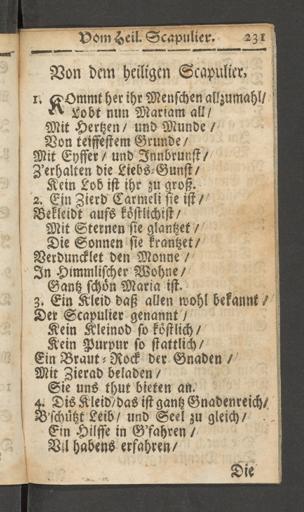 Vom Heil. Scapulier. 231
Von dem heiligen Scapulier.
1. KOmmt her ihr Menschen allzumahl/
Lobt nun Mariam all/
Mit Hertzen/ und Munde/
Von teiffestem Grunde/
Mit Eyffer/ und Innbrunst/
Z'erhalten die Liebs-Gunst/
Kein Lob ist ihr zu groß.
2. Ein Zierd Carmeli sie ist/
Bekleidt aufs köstlichist/
Mit Sternen sie glantzet/
Die Sonnen sie krantzet/
Verduncklet den Monne/
In Himmlischer Wohne/
Gantz schön Maria ist.
3. Ein Kleid daß allen wohl bekannt/
Der Scapulier genannt/
Kein Kleinod so köstlich/
Kein Purpur so stattlich/
Ein Braut-Rock der Gnaden/
Mit Zierad beladen/
Sie uns thut bieten an.
4. Dis Kleid/das ist gantz Gnadenreich/
B'schützt Leib/ und Seel zu gleich/
Ein Hilffe in G'fahren/
Vil habens erfahren/
Die